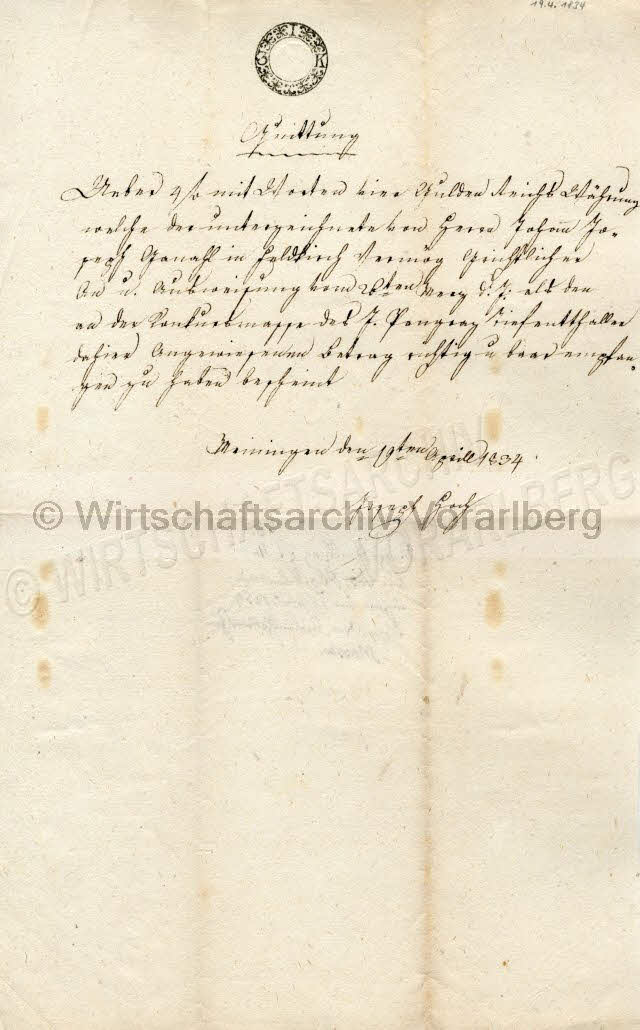 19.4.1834
3 I K
Quittung
Ueber 4 f mit Worten vier Gulden Reichs Währung
welche der unterzeichnete von Herrn Johann Jo-
seph Ganahl in Feldkirch Vermög Grichtlicher
An u. Ausweisung vom 26ten Merz d. J. als den
an der Konkursmasse des J. Pangraz Tiefentthaller
dahier Angewiesenen Betrag richtig u baar empfan-
gen zu haben bescheint
Meiningen den 19ten Aprill 1834.
Joseph Koch
© Wirtschaftsarchiv Vorarlberg
© WIRTSCHAFTSARCHIV VORARLBERG